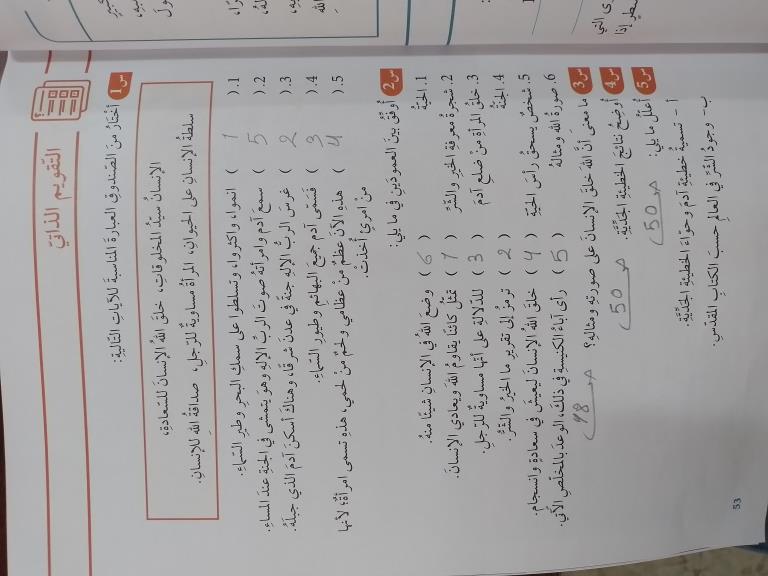 التقويم الذاتي
س1 أختارُ منَ الصّندوقِ العبارةَ المناسبةَ للآياتِ التّاليةِ:
الإنسانُ سيّدُ المخلوقاتِ، خلقَ اللهُ الإنسانَ للسّعادةِ،
سلطةُ الإنسانِ على الحيوانِ، المرأةُ مساويةٌ للرّجلِ، صداقةُ اللهِ للإنسانِ.
1. ( 1 ) انمواء واكثرواء وتسلطوا على سمكِ البحرِ وطيرِ السّماءِ.
2. ( 5 ) سمعَ آدم وامرأتهُ صوتَ الربِّ الإلهِ وهوَ يتمشى في الجنةِ عندَ المساءِ.
3. ( 2 ) غرسَ الربُّ الإلهِ جنةً في عدنَ شرقًا، وهناكَ أسكنَ آدمَ الذي جبلَهُ.
4. ( 3 ) فسَمّى آدم جميعَ البهائمِ وطيورِ السّماءِ.
5. ( 4 ) هذهِ الآنَ عظمٌ منْ عظامي ولحمٌ منْ لحمي، هذهِ تسمى امرأةً؛ لأنها
منْ امرئٍ أُخذتْ.
س2 أوفّقُ بينَ العمودَينِ في ما يلي:
1. الحيّةُ ( 6 ) وضعَ اللهُ في الإنسانِ شيئًا منهُ.
2. شجرةُ معرفةِ الخيرِ والشّرِّ ( 1 ) تمثّلُ كائنًا يقاومُ اللهَ ويعادي الإنسانَ.
3. خلقُ المرأةِ منْ ضلعِ آدمَ ( 3 ) للدّلالةِ على أنّها مساويةٌ للرّجلِ.
4. الجنّةُ ( 2 ) ترمزُ إلى تقريرِ ما الخيرُ والشّرُّ.
5. شخصٌ يسحقُ رأسَ الحيّةِ ( 4 ) خلقَ اللهُ الإنسانَ ليعيشَ في سعادةٍ وانسجامٍ.
6. صورةُ اللهِ ومثالهُ ( 5 ) رأى آباءُ الكنيسةِ في ذلكَ، الوعدَ بالمخلّصِ الآتي.
س3 ما معنى أنّ اللهَ خلقَ الإنسانَ على صورتهِ ومثالهِ؟ ص 48
س4 أوضحُ نتائجَ الخطيئةِ الجدّيّةِ. ص 50
س5 أعلّلُ ما يلي: ص 50
أ - تسميةُ خطيئةِ آدمَ وحوّاءَ الخطيئةَ الجدّيّةَ.
ب- وجودُ الشّرِّ في العالمِ حسبَ الكتابِ المقدّسِ.
53